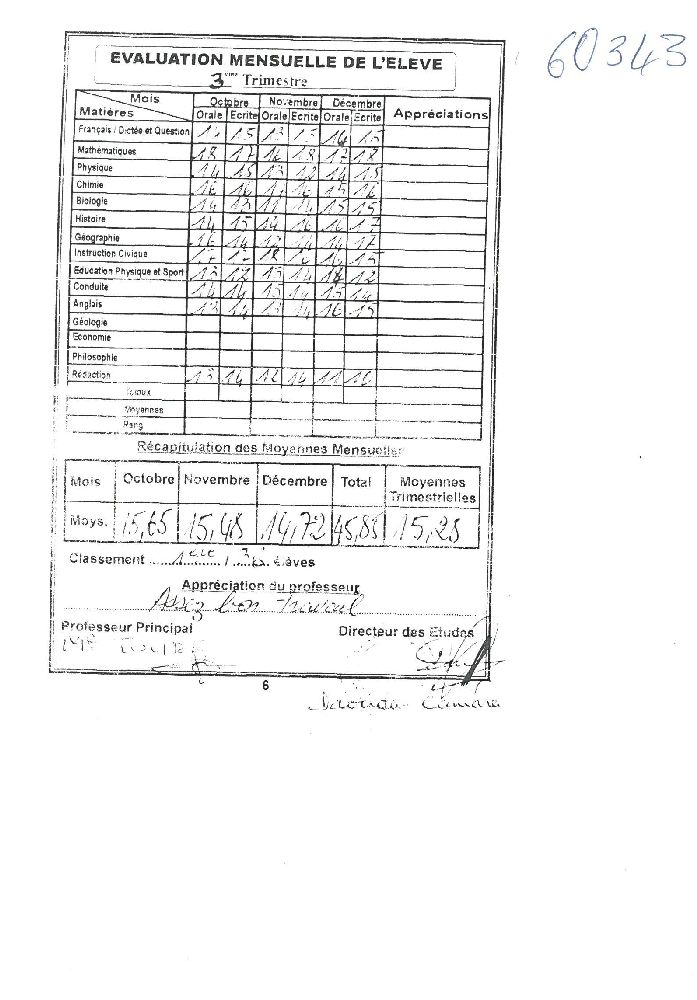 60343
EVALUATION MENSUELLE DE L'ELEVE
3ème Trimestre
Mois Octobre Novembre Décembre Appréciations
Matières Orale Ecrite Orale Ecrite Orale Ecrite
Français / Dictée et Question 15 13 15 14 15
Mathématiques 18 17 16 18 17 18
Physique 14 15 13 12 14 15
Chimie 16 16 15 16
Biologie 14 13 11 14 15 15
Histoire 14 15 14 16 16 17
Géographie 16 14 14 14 17
Instruction Civique 18 15
Education Physique et Sport 13 12 13 14 18 12
Conduite 14 14 15 14 15 14
Anglais 13 14 13 14 16 15
Géologie
Economie
Philosophie
Rédaction 13 14 12 14 11 16
Totaux
Moyennes
Rang
Récapitulation des Moyennes Mensuelles
Mois Octobre Novembre Décembre Total Moyennes Trimestrielles
Moys. 15,65 15,48 14,72 45,85 15,28
Classement 1ere / élèves
Appréciation du professeur
Assez bon travail
Professeur Principal Directeur des Etudes
6
Camara